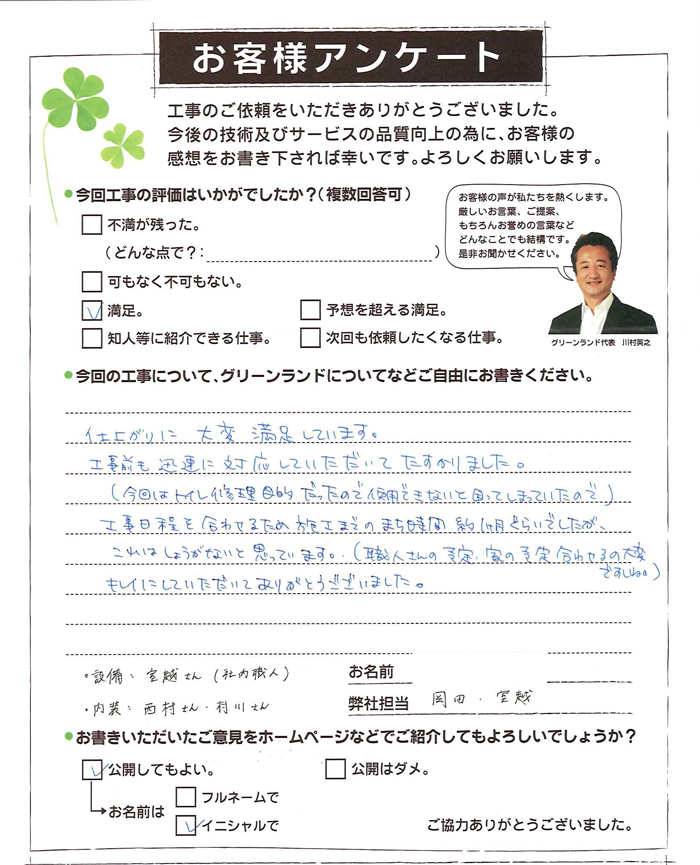 お客様アンケート
工事のご依頼をいただきありがとうございました。
今後の技術及びサービスの品質向上の為に、お客様の
感想をお書き下されば幸いです。よろしくお願いします。
●今回工事の評価はいかがでしたか?(複数回答可)
不満が残った。
(どんな点で?: )
可もなく不可もない。
満足。
予想を超える満足。
知人等に紹介できる仕事。
次回も依頼したくなる仕事。
お客様の声が私たちを熱くします。
厳しいお言葉、ご提案、
もちろんお誉めの言葉など
どんなことでも結構です。
是非お聞かせください。
グリーンランド代表 川村英之
●今回の工事について、グリーンランドについてなどご自由にお書きください。
仕上がりに 大変 満足しています。
工事前も 迅速に 対応していただいて たすかりました。
(今回はトイレ修理目的 だったので使用できないと困ってしまっていたので)
工事日程を合わせるため 施工までの まち時間 約1か月ぐらいでしたが、
これはしょうがないと 思っています。(職人さんの予定、家の予定 合わせるの大変
ですしね。)
キレイにしていただいてありがとうございました。
・設備: 宮越さん (社内職人)
・内装: 西村さん・村川さん
お名前
弊社担当 岡田・宮越
●お書きいただいたご意見をホームページなどでご紹介してもよろしいでしょうか?
公開してもよい。
公開はダメ。
お名前は
フルネームで
イニシャルで
ご協力ありがとうございました。